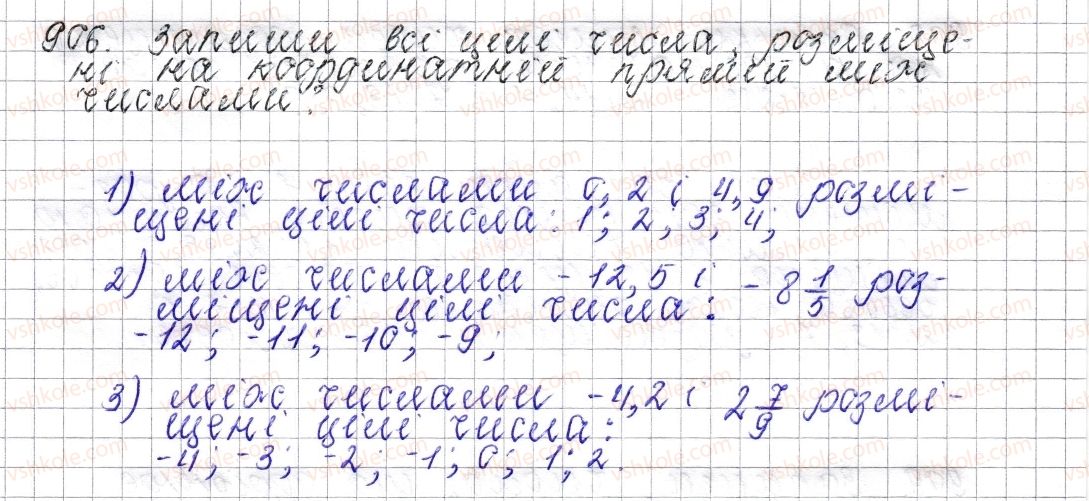 906. Запиши всі цілі числа, розміще-
ні на координатній прямій між
числами:
1) між числами 0,2 і 4,9 розмі-
щені цілі числа: 1; 2; 3; 4;
2) між числами -12,5 і -8 1/5 роз-
міщені цілі числа:
-12; -11; -10; -9;
3) між числами -4,2 і 2 7/9 розмі-
щені цілі числа:
-4; -3; -2; -1; 0; 1; 2.